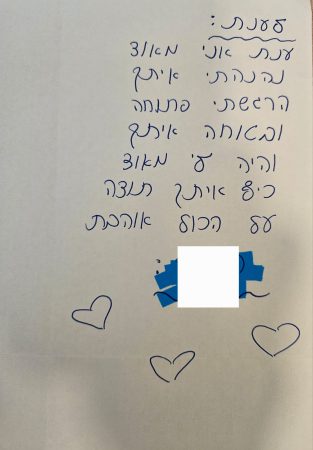 לענת:
ענת אני מאוד
נהנהתי איתך
הרגשתי פתוחה
ובטוחה איתך
והיה לי מאוד
כיף איתך תודה
על הכול אוהבת